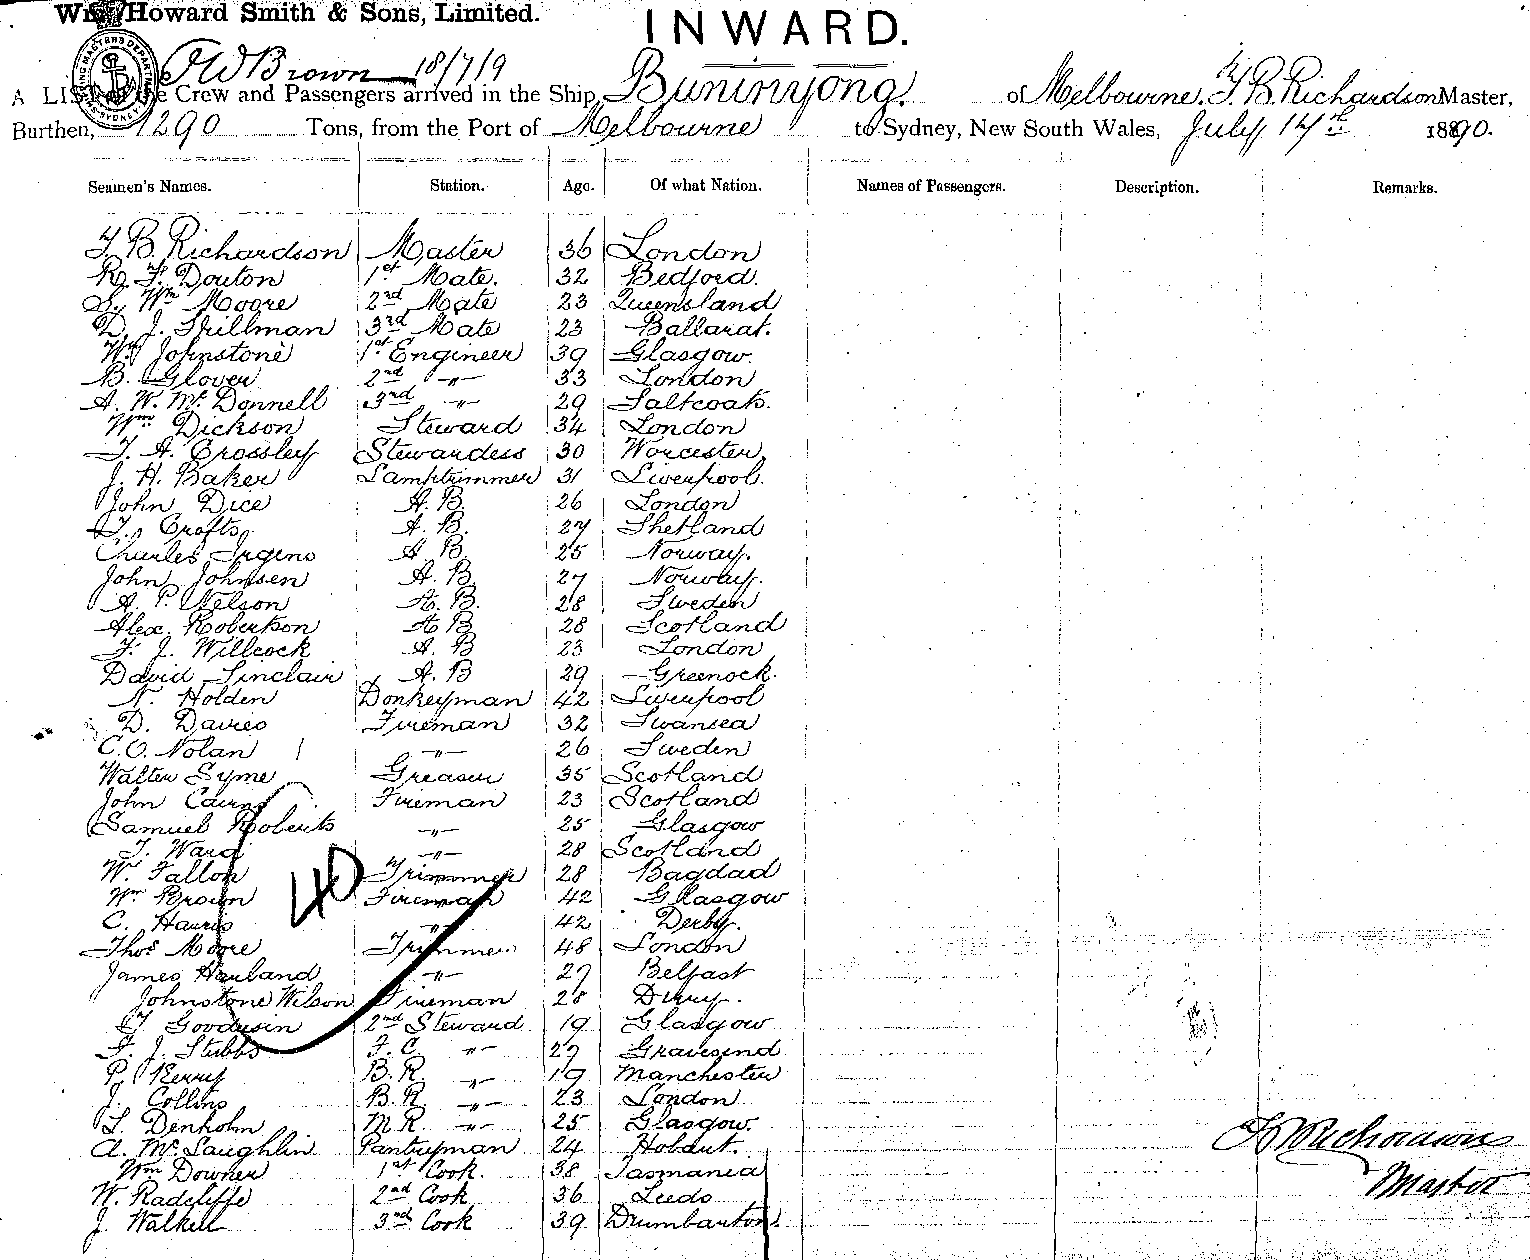 Wm Howard Smith & Sons, Limited.
INWARD.
F W Brown 18/7/9
A LIST of the Crew and Passengers arrived in the Ship Buninyong. of Melbourne. F. B. Richardson Master,
Burthen, 1290 Tons, from the Port of Melbourne to Sydney, New South Wales, July 17th 1890.
Seamen's Names. Station. Age. Of what Nation. Names of Passengers. Description. Remarks.
F. B. Richardson Master 36 London
R. F. Douton 1st Mate. 32 Bedford.
S. Wm Moore 2nd Mate 23 Queensland
D. J. Spillman 3rd Mate 23 Ballarat.
Wm Johnstone 1st Engineer 39 Glasgow.
B. Glover 2nd -"- 33 London
A. W. Mc Donnell 3rd -"- 29 Saltcoats.
Wm Dickson Steward 34 London
T. A. Crossley Stewardess 30 Worcester.
J. H. Baker Lamptrimmer 31 Liverpool.
John Dice A. B. 26 London
T. Crofts A. B. 27 Shetland
Charles Irgens A B. 25 Norway.
John Johnsen A. B. 27 Norway.
A. P. Nelson A. B. 28 Sweden
Alex. Robertson A B 28 Scotland
F. J. Willcock A. B 23 London
David Sinclair A. B 29 Greenock.
N. Holden Donkeyman 42 Liverpool
D. Davies Fireman 32 Swansea
C. O. Nolan -"- 26 Sweden
Walter Syme Greaser 35 Scotland
John Cairns Fireman 23 Scotland
Samuel Roberts -"- 25 Glasgow
T. Ward -"- 28 Scotland
Wm Fallon Trimmer 28 Bagdad
40
Wm Brown Fireman 42 Glasgow
C. Harris -"- 42 Derby.
Thos Moore Trimmer 48 London
James Harland -"- 27 Belfast
Johnstone Wilson Fireman 28 Derry.
T. Goodwin 2nd Steward 19 Glasgow
F. J. Stubbs F. C. -"- 27 Gravesend
P. Kerry B. R. -"- 19 Manchester
J. Collins B. R. -"- 23 London
L. Denholm M R. -"- 25 Glasgow.
A. McLaughlin Pantryman 24 Hobart.
Wm Downer 1st Cook. 38 Tasmania
W. Radcliffe 2nd Cook 36 Leeds
J. Walker 3rd Cook 39 Drumbarton.
Master